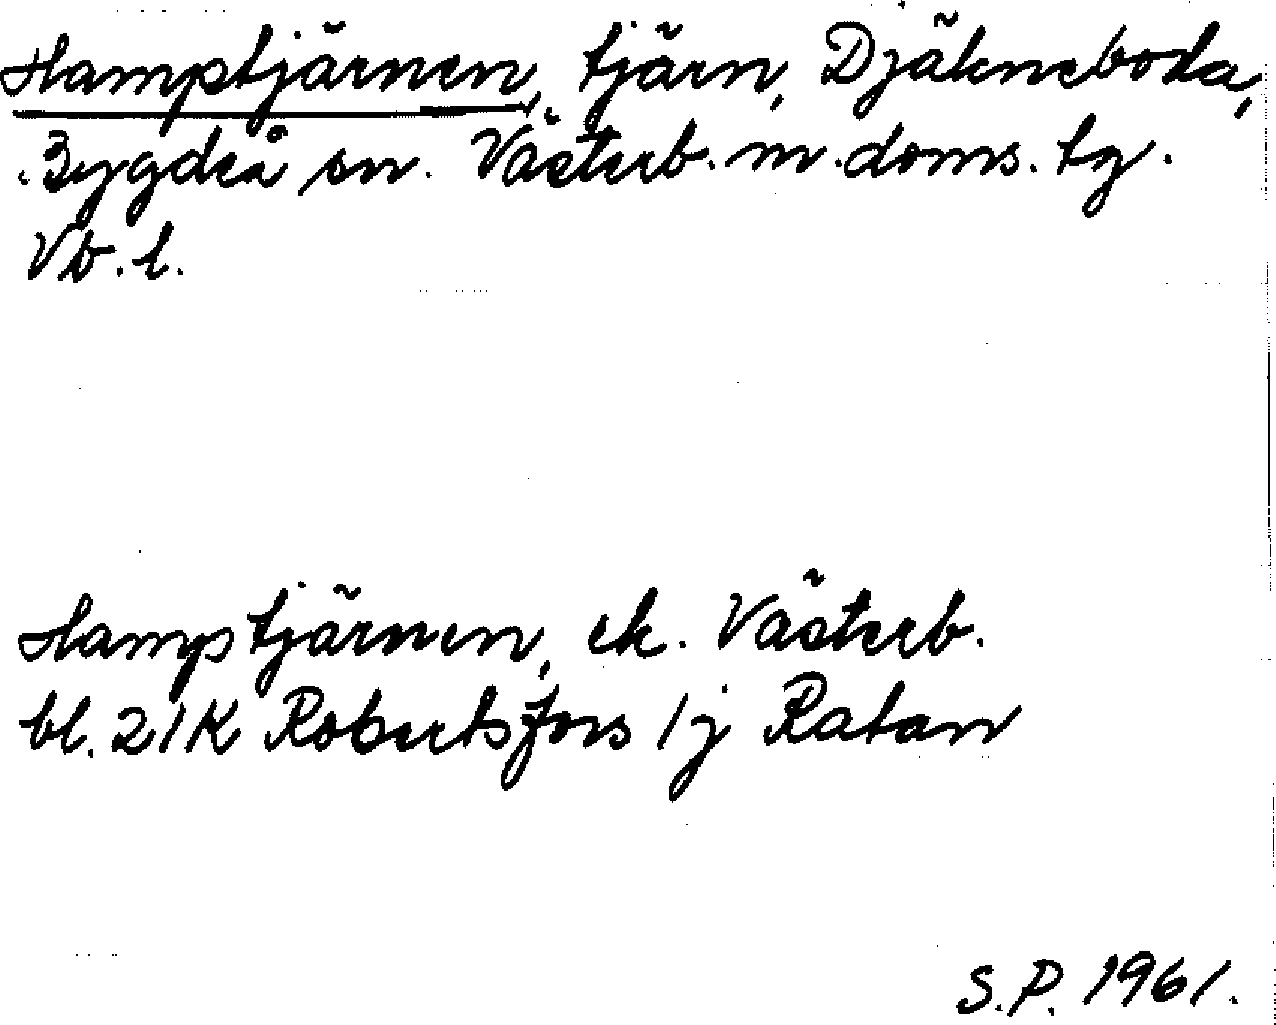 Hamptjärnen, tjärn, Djäkneboda,
Bygdeå sn. Västerb. m. doms. tg.
Vb. l.
Hamptjärnen, ek. Västerb.
bl. 21K Robertsfors 1j Ratan
S.P. 1961.